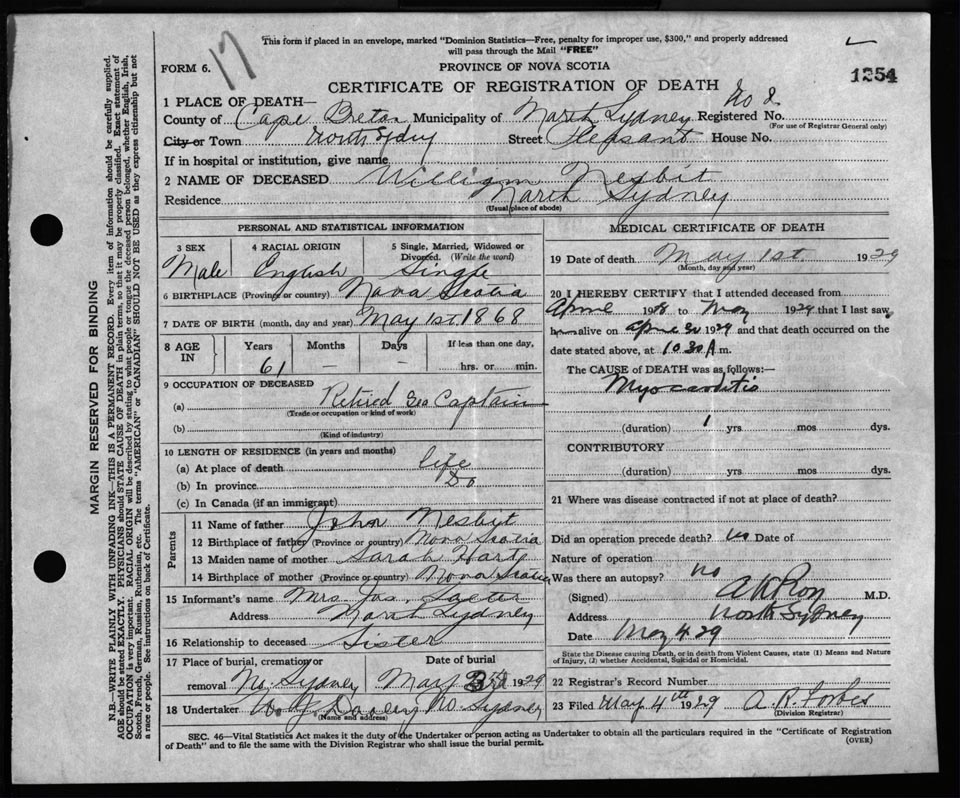 17
This form if placed in an envelope, marked "Dominion Statistics—Free, penalty for improper use, $300," and properly addressed
will pass through the Mail "FREE"
FORM 6.
PROVINCE OF NOVA SCOTIA
1254
CERTIFICATE OF REGISTRATION OF DEATH
1 PLACE OF DEATH—
County of Cape Breton Municipality of North Sydney Registered No.
(For use of Registrar General only)
City or Town North Sydney Street Pleasant House No.
If in hospital or institution, give name
2 NAME OF DECEASED William Nesbit
Residence North Sydney
(Usual place of abode)
PERSONAL AND STATISTICAL INFORMATION
3 SEX 4 RACIAL ORIGIN 5 Single, Married, Widowed or
Divorced. (Write the word)
Male English Single
6 BIRTHPLACE (Province or country) Nova Scotia
7 DATE OF BIRTH (month, day and year) May 1st 1868
8 AGE IN Years Months Days If less than one day,
61 — — hrs. or min.
9 OCCUPATION OF DECEASED
(a) Retired Sea Captain
(Trade or occupation or kind of work)
(b)
(Kind of industry)
10 LENGTH OF RESIDENCE (in years and months)
(a) At place of death life
(b) In province Do
(c) In Canada (if an immigrant)
Parents
11 Name of father John Nesbyt
12 Birthplace of father (Province or country) Nova Scotia
13 Maiden name of mother Sarah Hart
14 Birthplace of mother (Province or country) Nova Scotia
15 Informant's name Mrs Jas.
Address North Sydney
16 Relationship to deceased Sister
17 Place of burial, cremation or
removal No. Sydney
Date of burial
May 1929
18 Undertaker No. Sydney
(Name and address)
MEDICAL CERTIFICATE OF DEATH
19 Date of death May 1st 1929
(Month, day and year)
20 I HEREBY CERTIFY that I attended deceased from
April 1928 to May 1929 that I last saw
him alive on April 30 1929 and that death occurred on the
date stated above, at 10 30 A m.
The CAUSE of DEATH was as follows:—
Myocarditis
(duration) 1 yrs mos dys.
CONTRIBUTORY
(duration) yrs mos dys.
21 Where was disease contracted if not at place of death?
Did an operation precede death? no Date of
Nature of operation
Was there an autopsy? no
(Signed) M.D.
Address North Sydney
Date May 4 29
State the Disease causing Death, or in death from Violent Causes, state (1) Means and Nature
of Injury, (2) whether Accidental, Suicidal or Homicidal.
22 Registrar's Record Number
23 Filed May 4th 1929 A. R. Forbes
(Division Registrar)
SEC. 46—Vital Statistics Act makes it the duty of the Undertaker or person acting as Undertaker to obtain all the particulars required in the "Certificate of Registration
of Death" and to file the same with the Division Registrar who shall issue the burial permit.
(OVER)
MARGIN RESERVED FOR BINDING
N.B.—WRITE PLAINLY WITH UNFADING INK—THIS IS A PERMANENT RECORD. Every item of information should be carefully supplied.
AGE should be stated EXACTLY. PHYSICIANS should STATE CAUSE OF DEATH in plain terms, so that it may be properly classified. Exact statement of
OCCUPATION is very important. RACIAL ORIGIN will be described by stating to what people or tongue the deceased person belonged, whether English, Irish,
Scotch, French, German, Russian, Ruthenian, etc. The terms "AMERICAN" or "CANADIAN" SHOULD NOT BE USED as they express citizenship but not
a race or people. See instructions on back of Certificate.